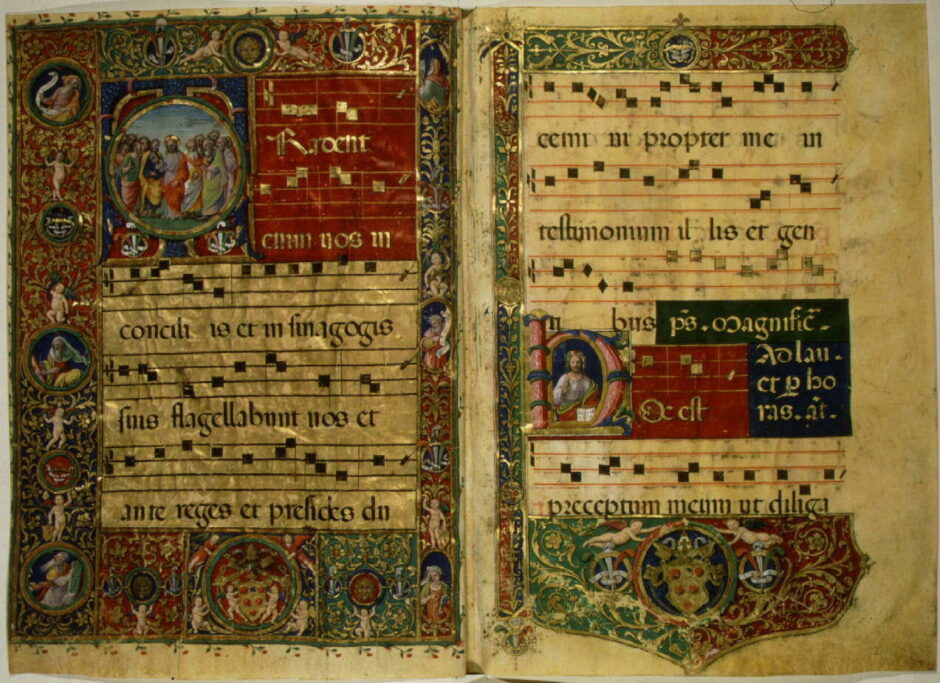 Radent
enim uos in
concili is et in sinagogis
suis flagellabunt uos et
ante reges et presides du
cemi ni propter me in
testimonium il lis et gen
ti bus ps. Magnific̄.
Ad lau-
et p̱ ho
ras. añ.
Oc est
preceptum meum ut diliga